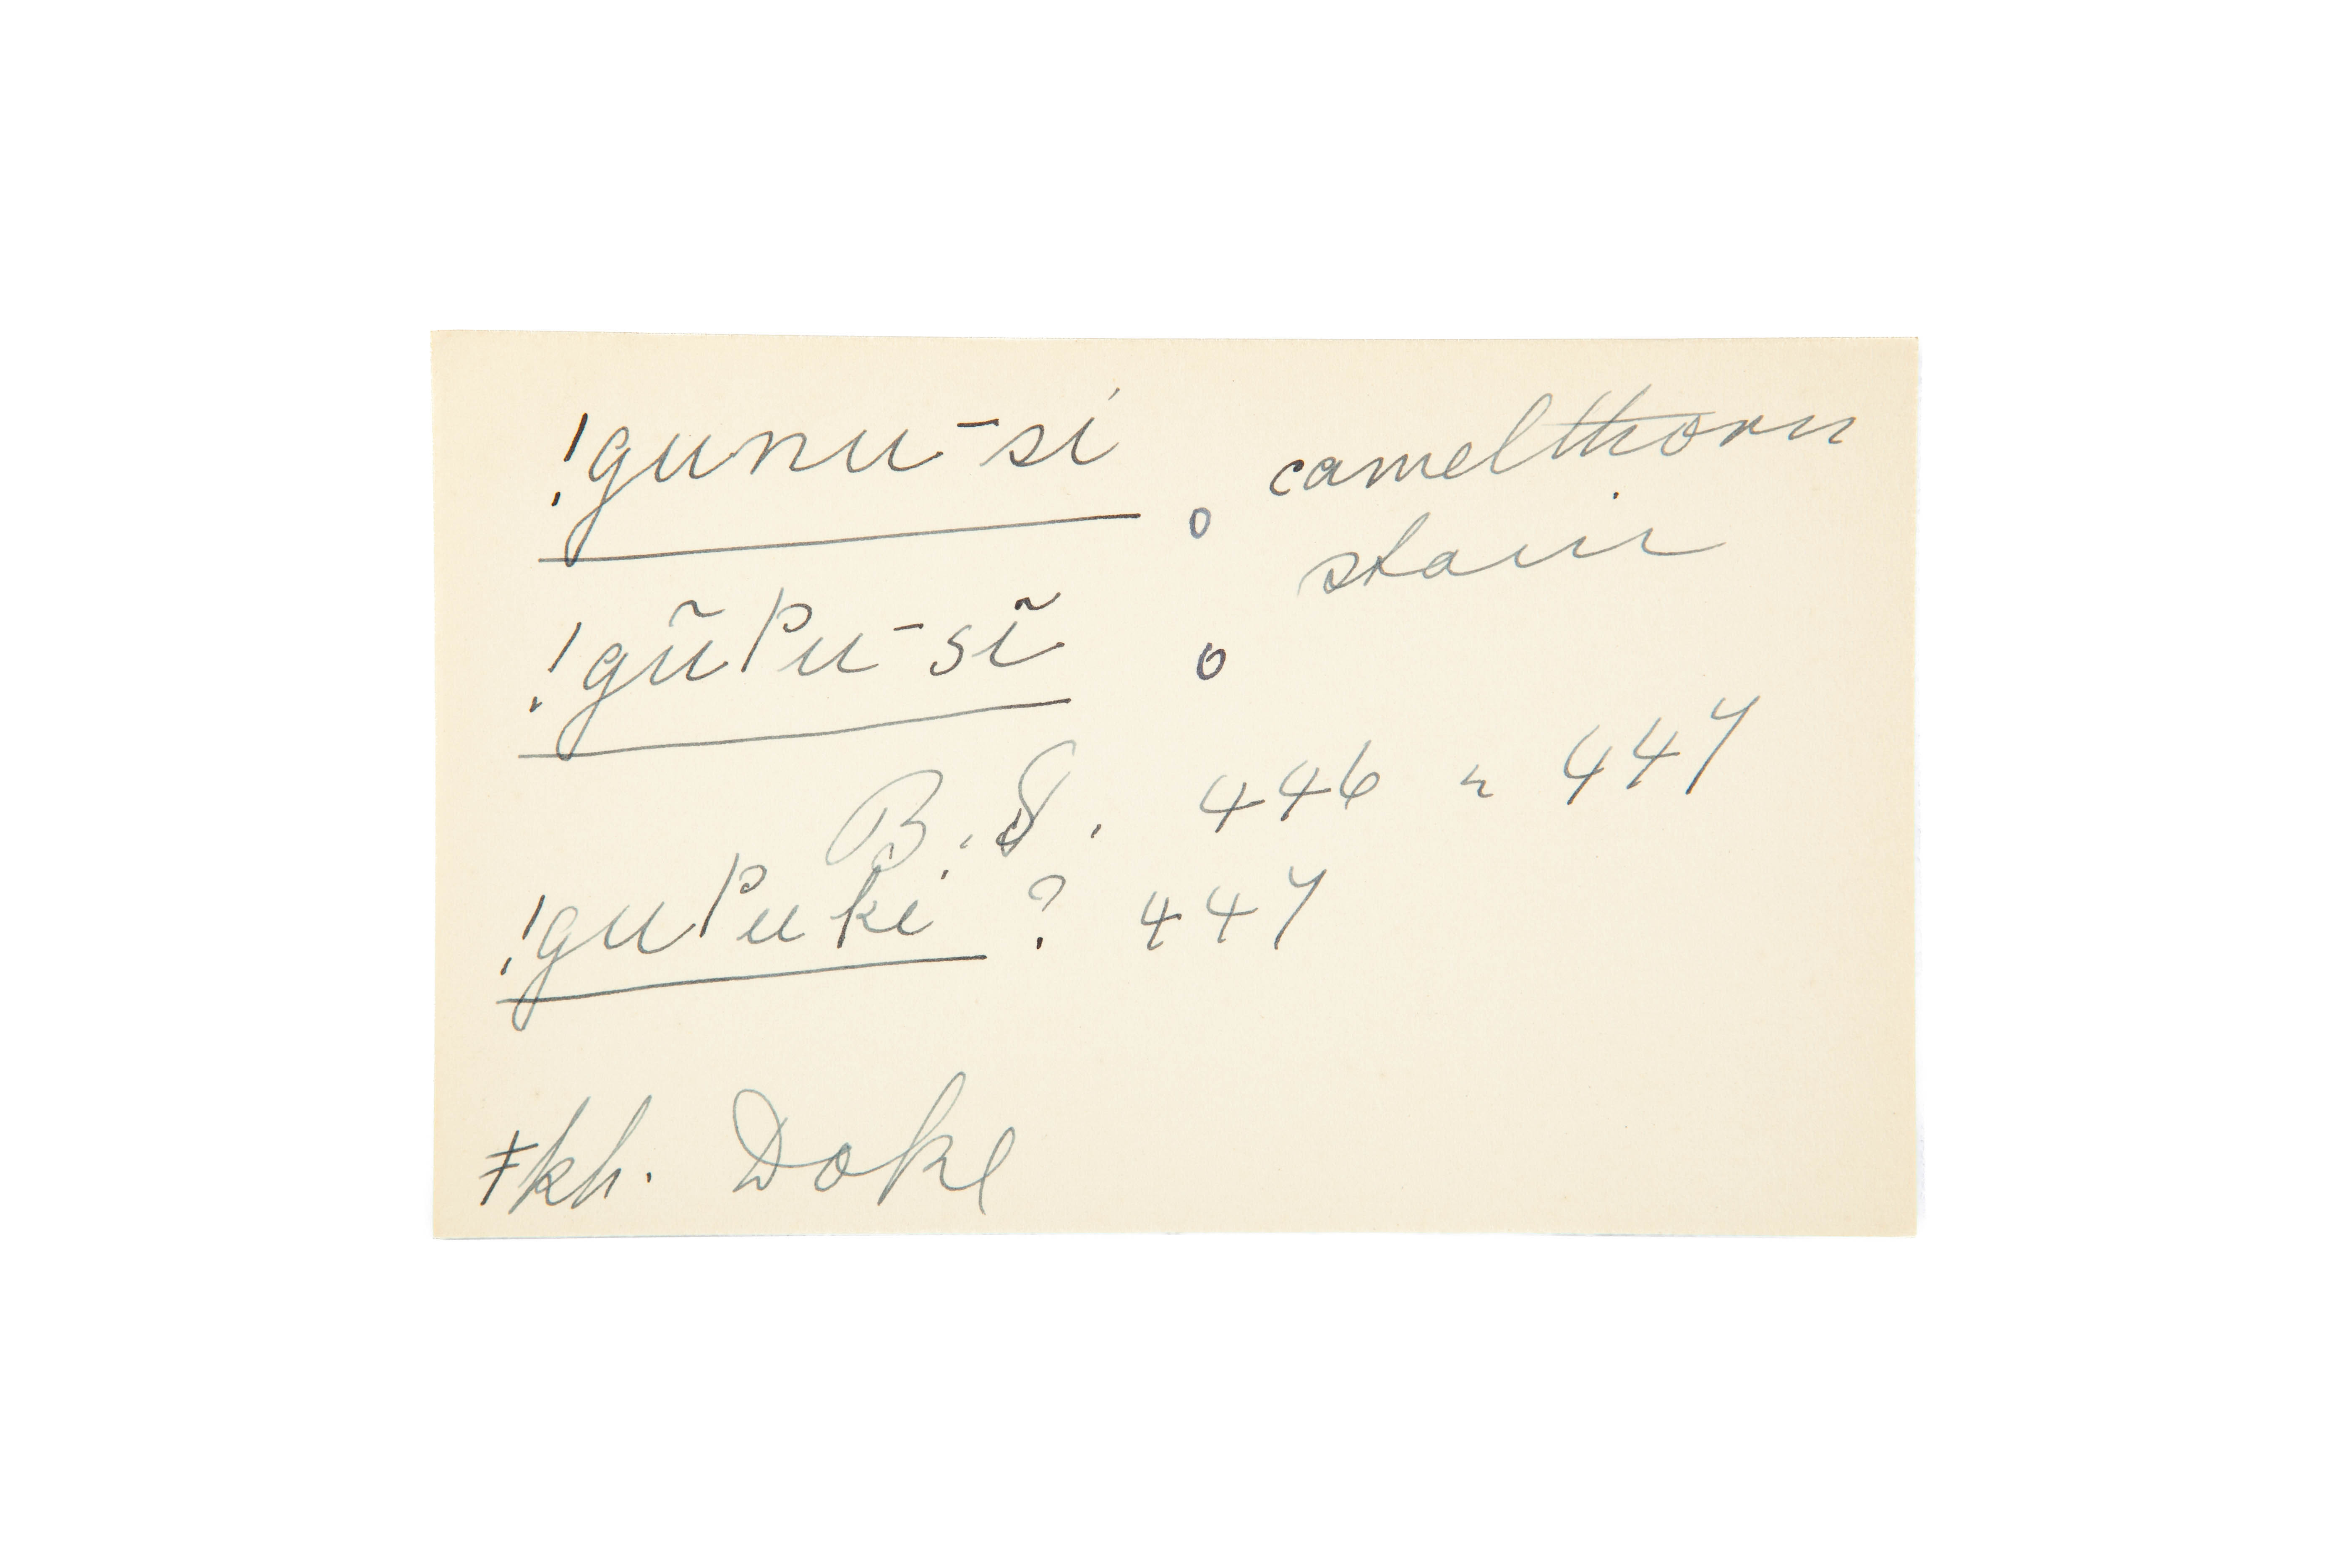 !gunu-si o camelthorn
stain
!gũʔu-sĩ o
B.S. 446 ~ 447
!guʔuki ? 447
ǂkh. Doke